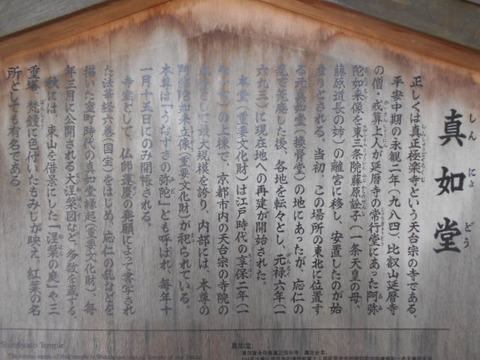 真如堂
しん にょ どう
正しくは真正極楽寺という天台宗の寺である。
平安中期の永観二年(九八四)、比叡山延暦寺
の僧・戒算上人が延暦寺の常行堂にあった阿弥
陀如来像を東三条院藤原詮子(一条天皇の母、
藤原道長の姉)の離宮に移し、安置したのが始
まりとされる。当初、この場所の東北に位置す
る元真如堂(換骨堂)の地にあったが、応仁の
乱で荒廃した後、各地を転々とし、元禄六年(一
六九三)に現在地への再建が開始された。
本堂(重要文化財)は江戸時代の享保二年(一
の上棟で、京都市内の天台宗の寺院の
本堂として最大規模を誇り、内部には、本尊の
阿弥陀如来立像(重要文化財)が祀られている。
本尊は「うなずきの弥陀」とも呼ばれ、毎年十
一月十五日にのみ開帳される。
寺宝として、仏師運慶の発願によって書写され
た法華経六巻(国宝)をはじめ、応仁の乱などを
描いた室町時代の真如堂縁起(重要文化財)、毎
年三月に公開される大涅槃図など、多数を蔵する。
秋には、東山を借景にした「涅槃の庭」や三
重塔、梵鐘に色付いたもみじが映え、紅葉の名
所としても有名である。
Shinnyodo Temple
真如堂